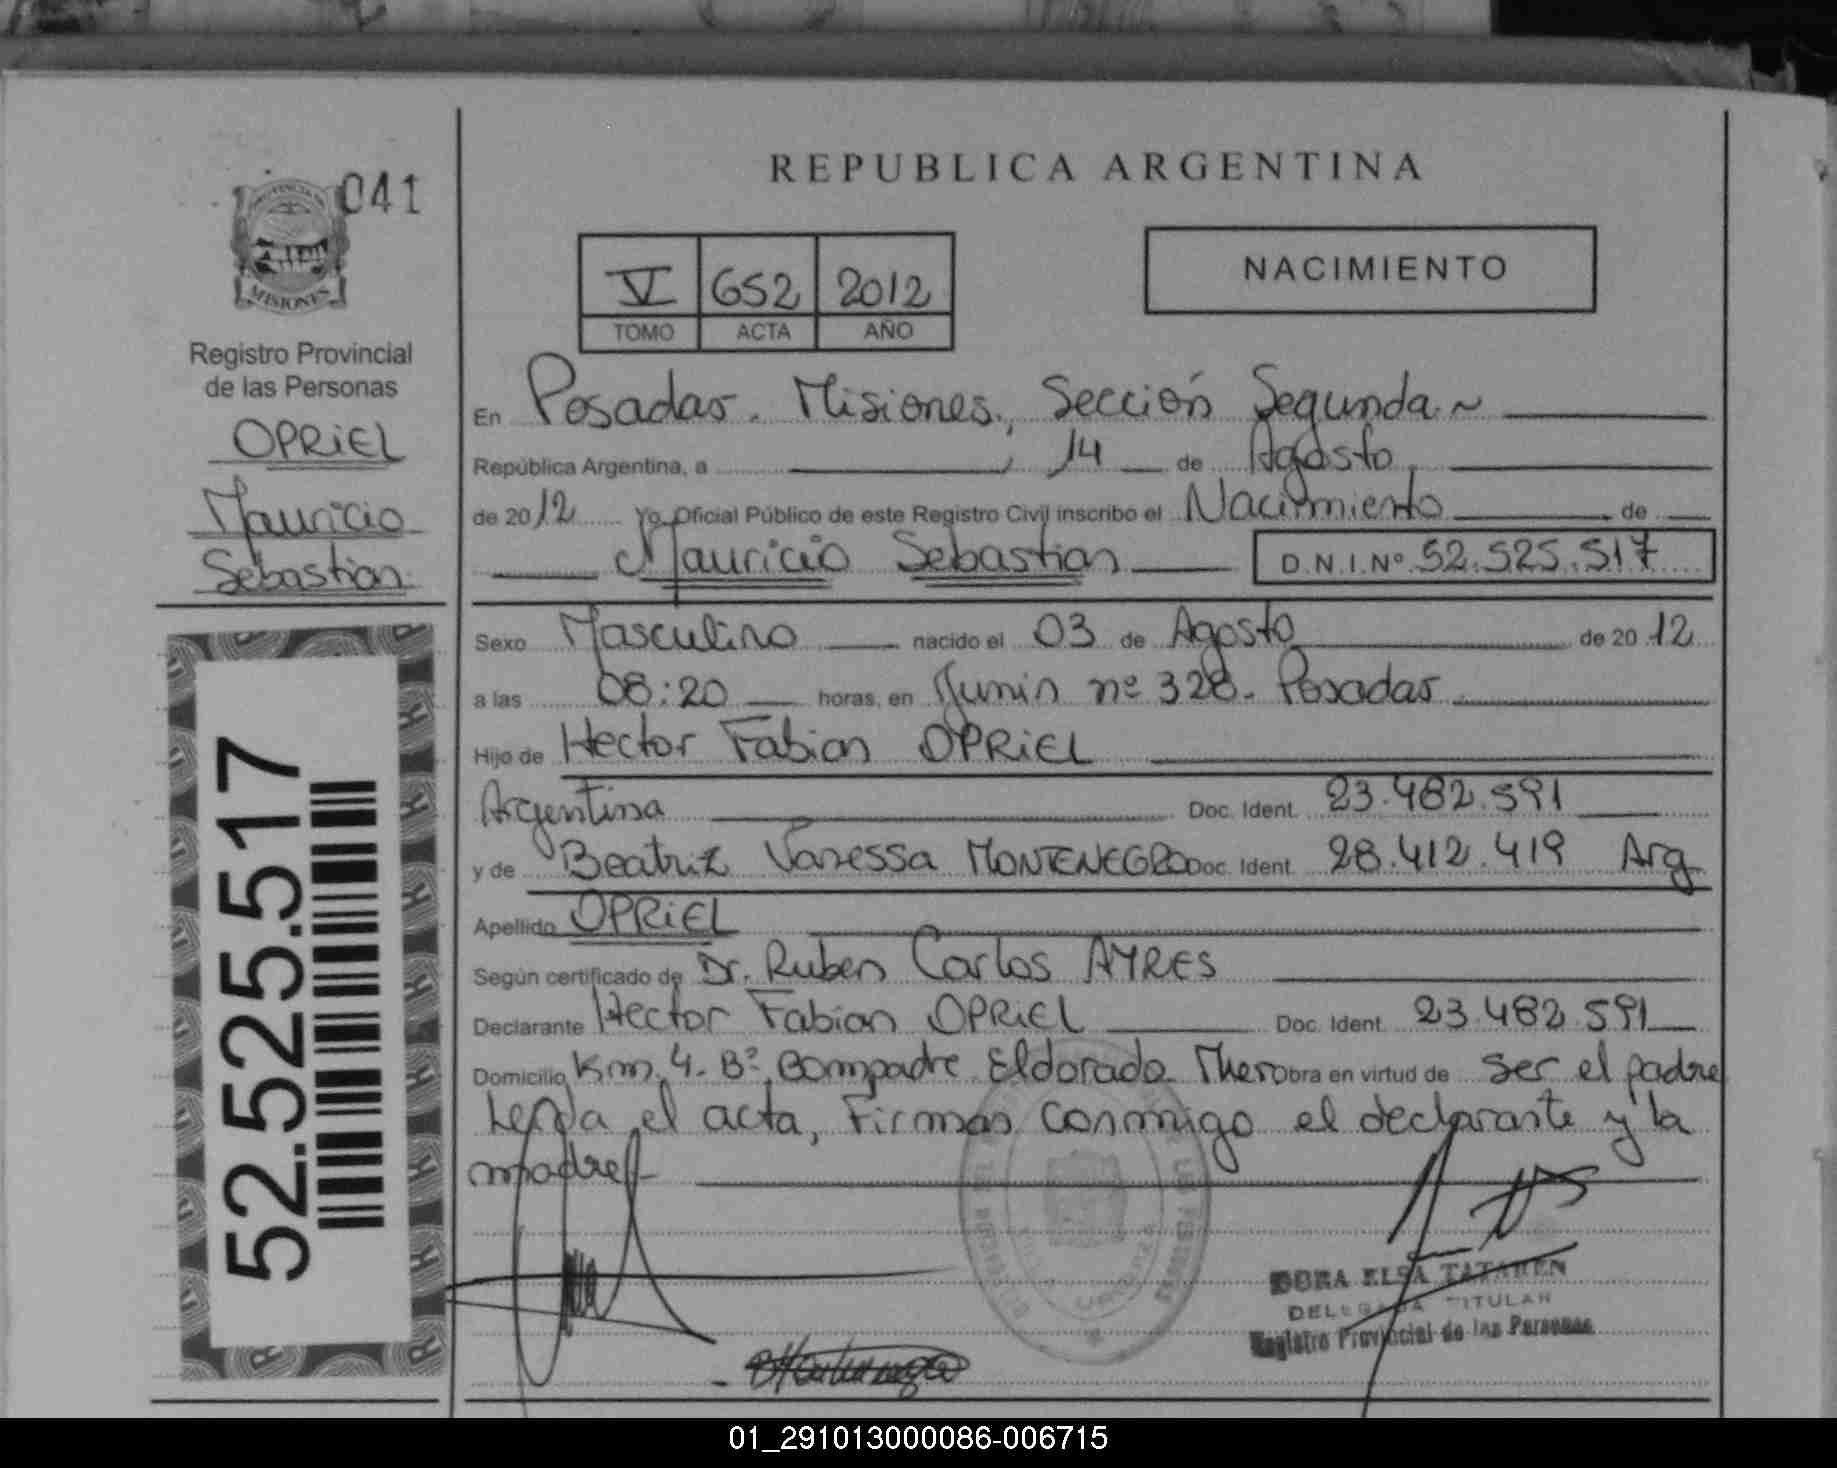 REPUBLICA ARGENTINA
041
PROVINCIA DE
MISIONES
Registro Provincial
de las Personas
OPRIEL
Mauricio
Sebastian
52.525.517
V 652 2012
TOMO ACTA AÑO
NACIMIENTO
En Posadas. Misiones, Sección Segunda ~
República Argentina, a , 14 de Agosto,
de 2012 Yo, Oficial Público de este Registro Civil inscribo el Nacimiento de
Mauricio Sebastian D.N.I.Nº 52.525.517
Sexo Masculino nacido el 03 de Agosto de 2012
a las 08:20 horas, en Junin nº 328. Posadas
Hijo de Hector Fabian OPRIEL
Argentina Doc. Ident. 23.482.591
y de Beatriz Vanessa MONTENEGRO Doc. Ident. 28.412.419 Arg
Apellido OPRIEL
Según certificado de Dr. Ruben Carlos AYRES
Declarante Hector Fabian OPRIEL Doc. Ident. 23.482.591
Domicilio Km. 4. Bº. Compadre Eldorado Mnes obra en virtud de ser el padre
Leída el acta, Firman conmigo el declarante y la
madre
DORA ELSA TATAREN
DELEGADA TITULAR
Registro Provincial de las Personas
01_291013000086-006715